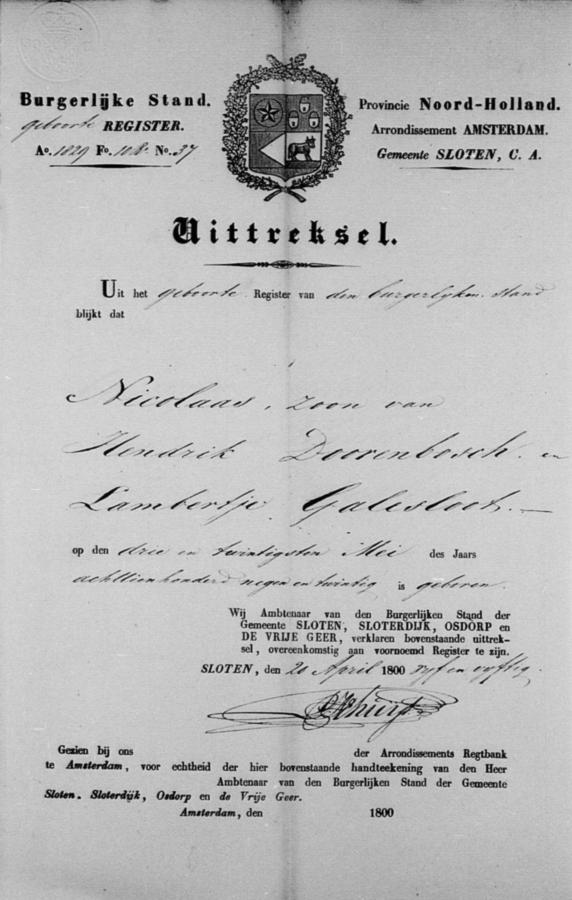 Burgerlijke Stand.
geboorte REGISTER.
Ao. 1829 Fo. 108 No. 37
Provincie Noord-Holland.
Arrondissement AMSTERDAM.
Gemeente SLOTEN, C. A.
Uittreksel.
Uit het geboorte Register van den burgerlyken stand
blijkt dat
Nicolaas, zoon van
Hendrik Doorenbosch en
Lambertje Galesloot. —
op den drie en twintigsten Mei des Jaars
achttienhonderd negen en twintig is geboren.
Wij Ambtenaar van den Burgerlijken Stand der
Gemeente SLOTEN, SLOTERDIJK, OSDORP en
DE VRIJE GEER, verklaren bovenstaande uittrek-
sel, overeenkomstig aan voornoemd Register te zijn.
SLOTEN, den 20 April 1800 vyf en vyftig.
Gezien bij ons der Arrondissements Regtbank
te Amsterdam, voor echtheid der hier bovenstaande handteekening van den Heer
Ambtenaar van den Burgerlijken Stand der Gemeente
Sloten. Sloterdijk, Osdorp en de Vrije Geer.
Amsterdam, den 1800